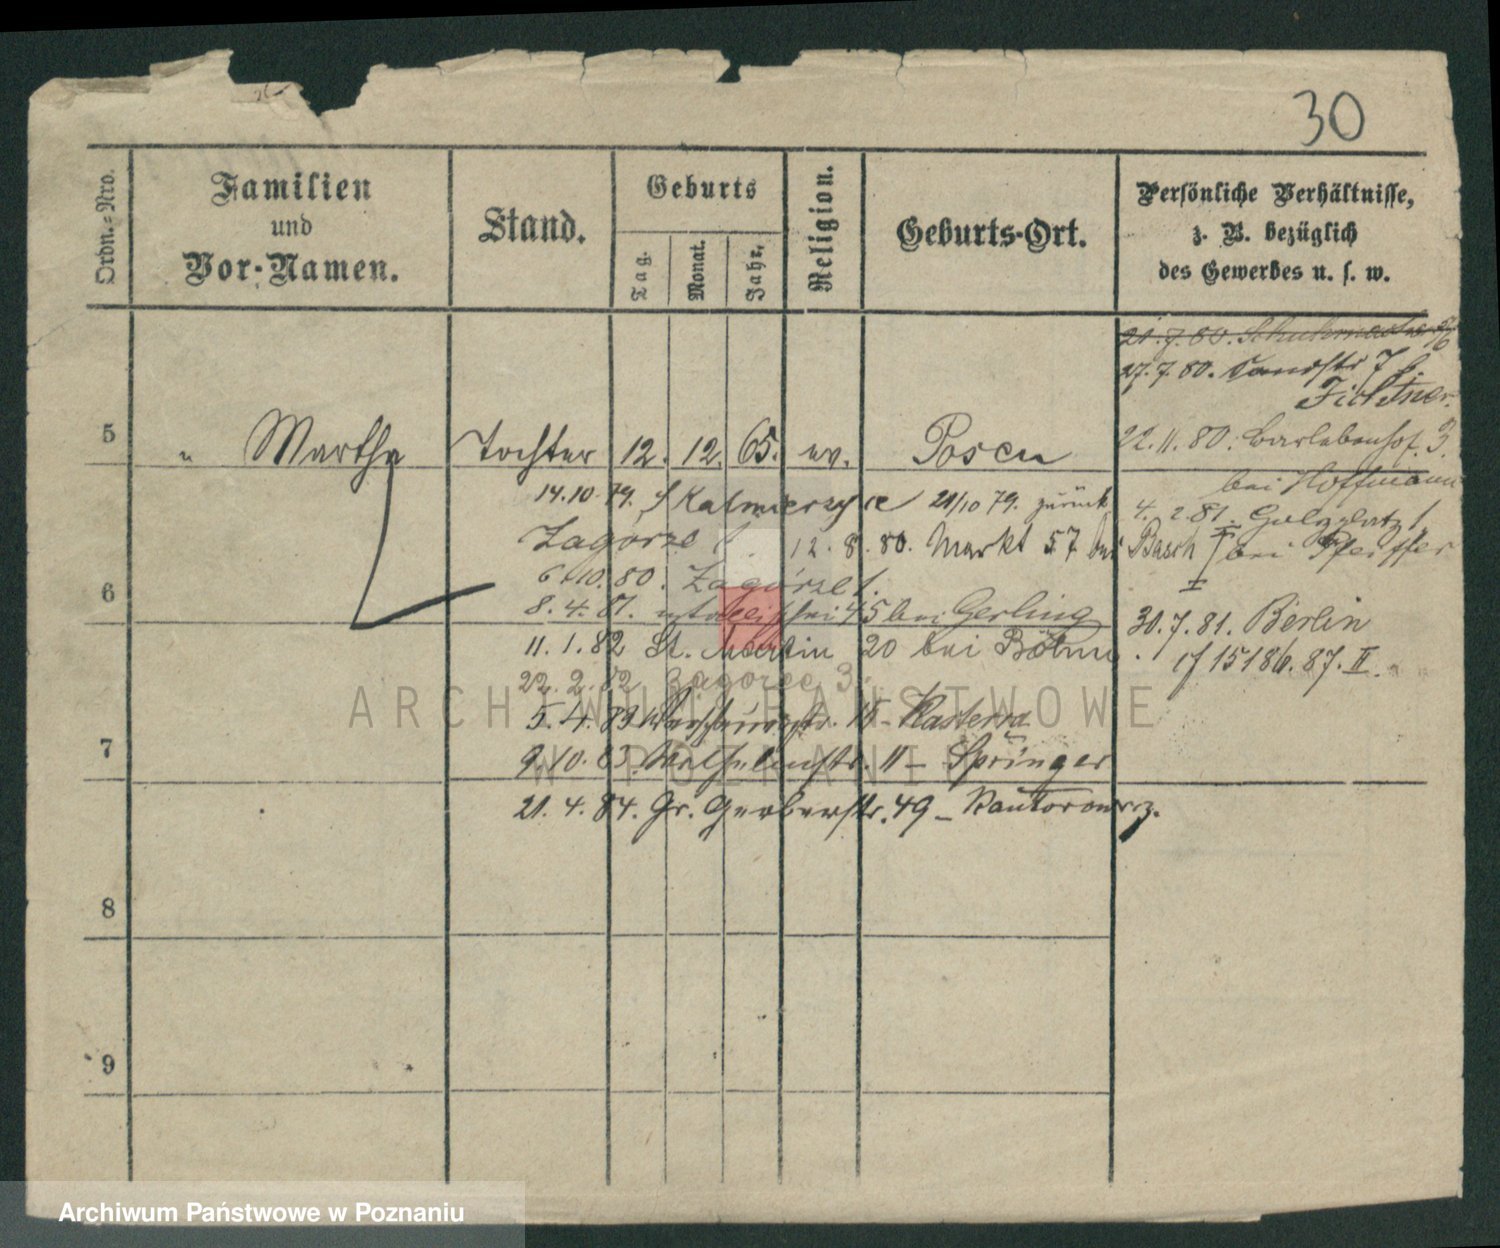 30
Ordn.-Nro.
Familien
und
Vor-Namen.
Stand.
Geburts
Tag.
Monat.
Jahr.
Religion.
Geburts-Ort.
Persönliche Verhältnisse,
z. B. bezüglich
des Gewerbes u. s. w.
21.7.80.
27.7.80. Sandstr 7 b.
Fichtner.
5 " Martha Tochter 12. 12. 65. ev. Posen
22.11.80. 3.
bei Hoffmann
14.10.79. 21/10 79. zurück
4. 2. 81. 1
Zagorze 12. 8. 80. Markt 57 bei Basch
bei Pfeiffer
6 6.10.80. Zagórze 1.
8.4.81. 45 bei Gerling
30.7.81. Berlin
11.1.82 St. Martin 20 bei Böhm.
cf 15186.87. II.
22.2.82 Zagorze 3.
ARCHIWUM PAŃSTWOWE
5.4.83 15 -
7 W POZNANIU
9.10.83. Wilhelmstr. 11 - Springer
21.4.84. Gr. Gerberstr. 49 - Kantorowicz.
8
9
Archiwum Państwowe w Poznaniu